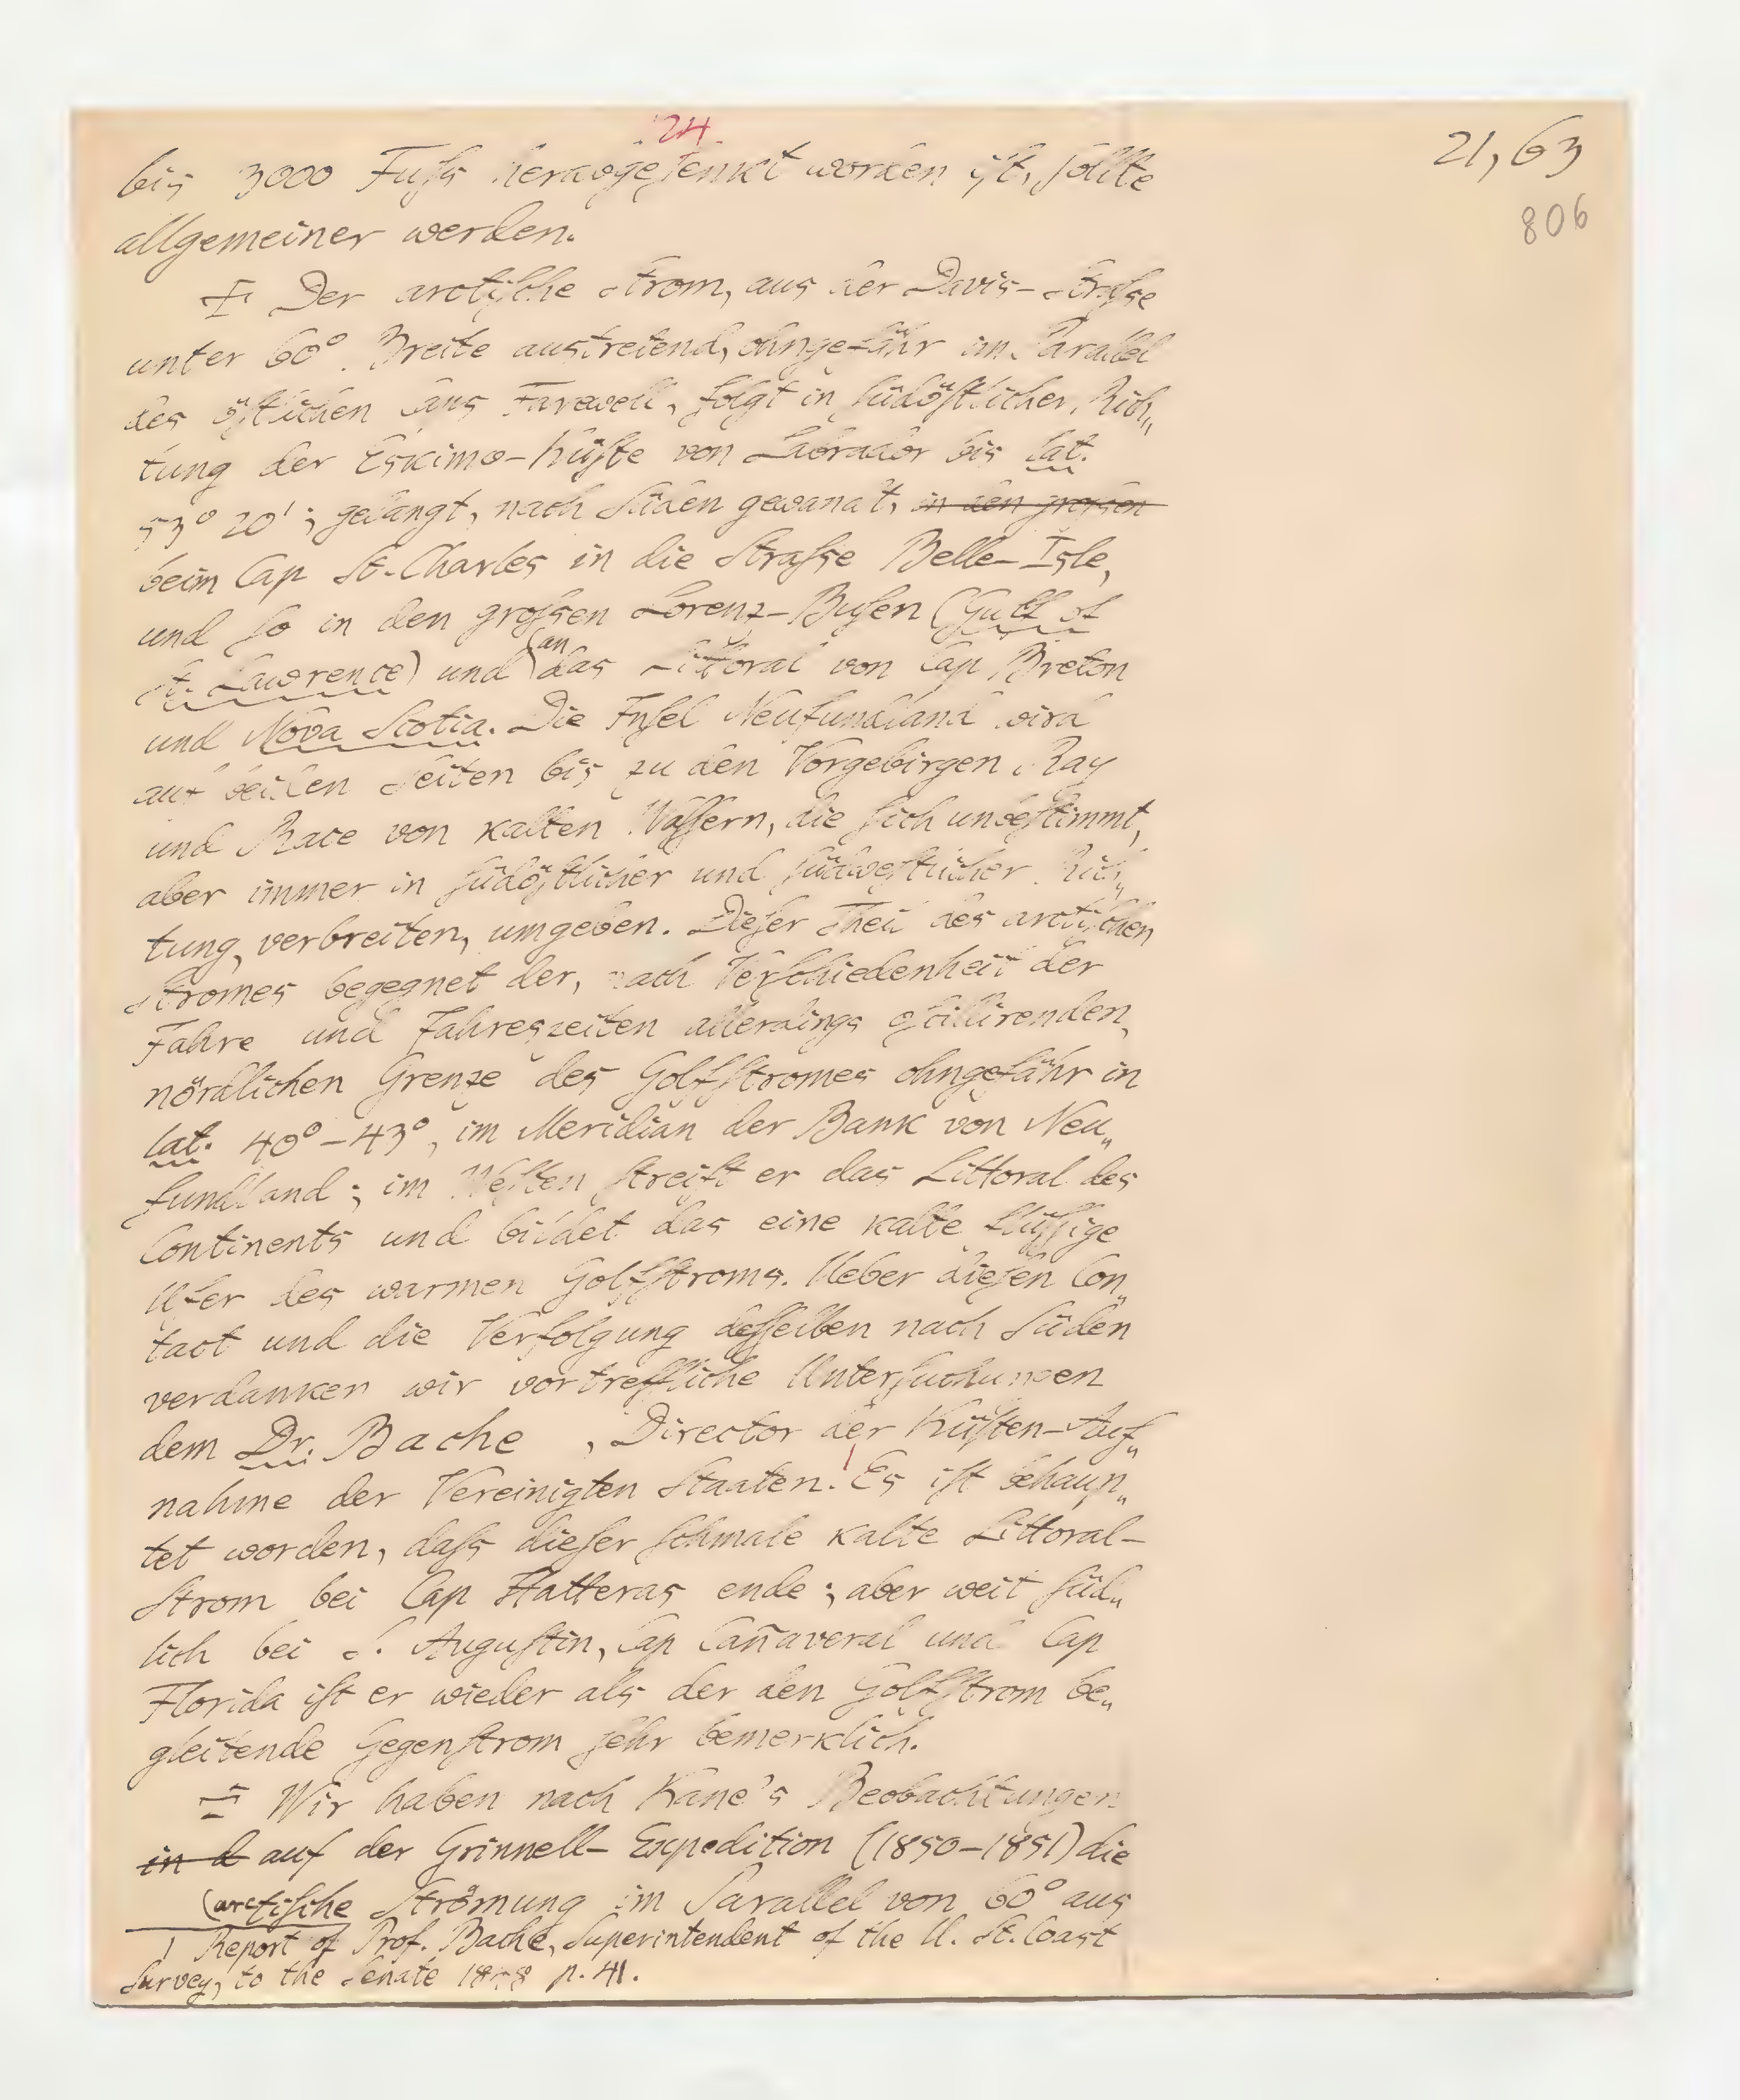 24.
21,63
806
bis 3000 Fuſs herabgeſenkt worden iſt, ſollte
allgemeiner werden.
Der arctiſche Strom, aus der Davis-Straſse
unter 60° Breite austretend, ohngefähr im Parallel
des öſtlichen Caps Farewell, folgt in ſüdöſtlicher Rich„
tung der Eskimo-Küſte von Labrador bis lat.
53° 20'; gelangt, nach Süden gewandt, in den grossen
beim Cap St. Charles in die Straſse Belle-Isle,
und ſo in den groſsen Lorenz-Buſen (Gulf of
St. Lawrence) und an das Littoral von Cap Breton
und Nova Scotia. Die Inſel Neufundland wird
auf beiden Seiten bis zu den Vorgebirgen Ray
und Race von kalten Waſſern, die ſich unbeſtimmt,
aber immer in ſüdöſtlicher und ſüdweſtlicher Rich„
tung, verbreiten, umgeben. Dieſer Theil des arctiſchen
Stromes begegnet der, nach Verſchiedenheit der
Jahre und Jahreszeiten allerdings oſcillirenden,
nördlichen Grenze des Golfſtromes ohngefähr in
lat. 40°–43°, im Meridian der Bank von Neu„
fundland; im Weſten ſtreift er das Littoral des
Continents und bildet das eine kalte flüſſige
Ufer des warmen Golfſtroms. Ueber dieſen Con„
tact und die Verfolgung deſſelben nach Süden
verdanken wir vortreffliche Unterſuchungen
dem Dr. Bache, Director der Küſten-Auf„
nahme der Vereinigten Staaten.¹ Es iſt behaup„
tet worden, daſs dieſer ſchmale kalte Littoral-
Strom bei Cap Hatteras ende; aber weit ſüd„
lich bei S. Auguſtin, Cap Cañaveral und Cap
Florida iſt er wieder als der den Golfſtrom be„
gleitende Gegenſtrom ſehr bemerklich.
Wir haben nach Kane's Beobachtungen
in d auf der Grinnell-Expedition (1850–1851) die
arctiſche Strömung im Parallel von 60° aus
1 Report of Prof. Bache, Superintendent of the U. St. Coast
Survey, to the Senate p. 41.